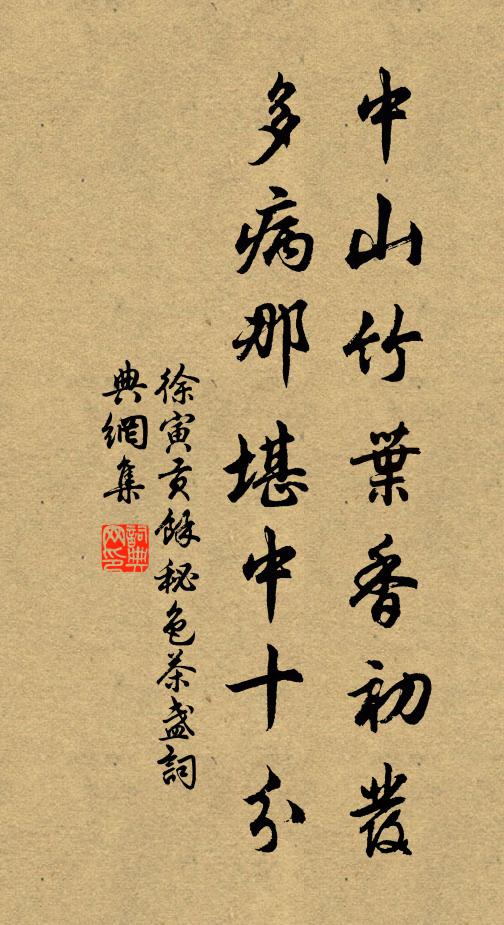 中山竹葉香初發
多病那堪中十分
徐寅貢餘秘色茶盞詞
典網集
詞典網印